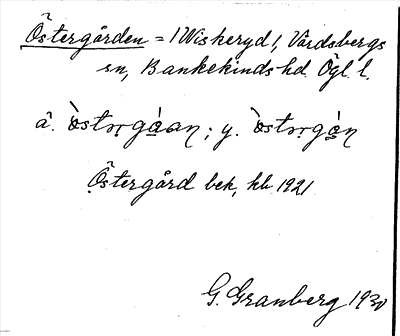 Östergården = 1 Wiskeryd 1, Vårdsbergs
sn, Bankekinds hd. Ögl. l.
ä. òstərgá̱an; y. òstərgá̱n
Östergård bek, kb 1921
G. Granberg 1930